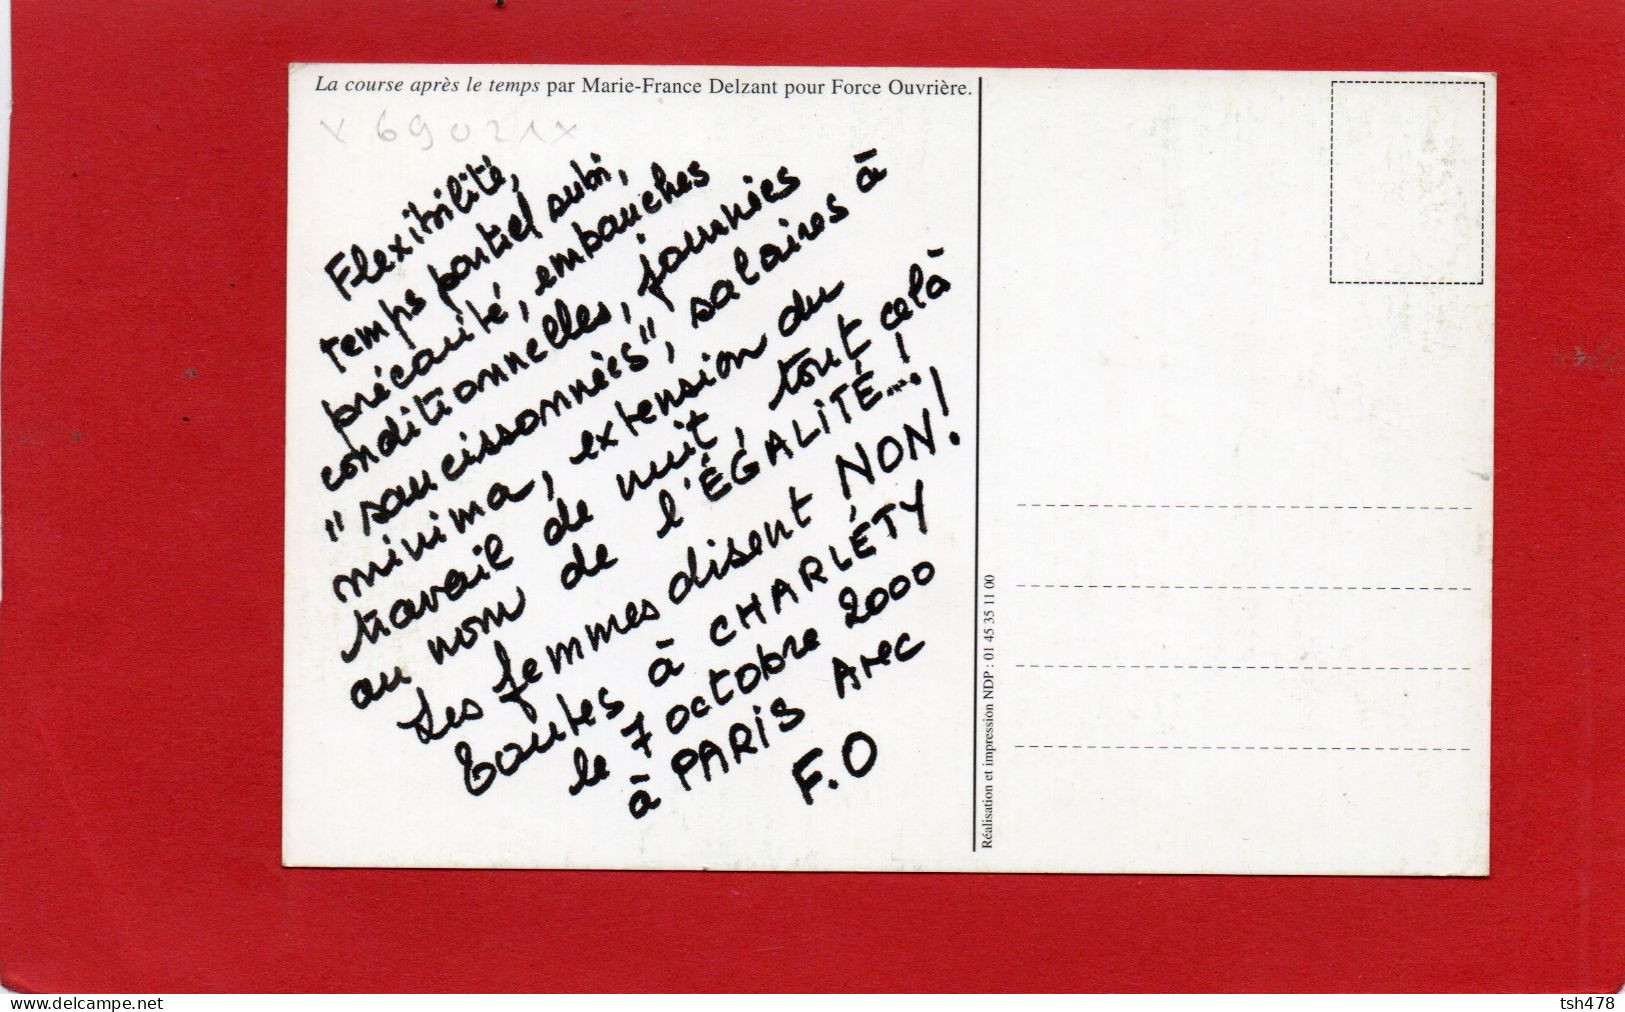 La course après le temps par Marie-France Delzant pour Force Ouvrière.
x 69021x
Flexibilité,
temps partiel subi,
précarité, embauches
conditionnelles, journées
"saucissonnées", salaires à
minima, extension du
travail de nuit, tout celà
au nom de l'ÉGALITÉ...!
Les femmes disent NON!
toutes à CHARLÉTY
le 7 octobre 2000
à PARIS Avec
F.O
Réalisation et impression NDP : 01 45 35 11 00
www.delcampe.net
tsh478